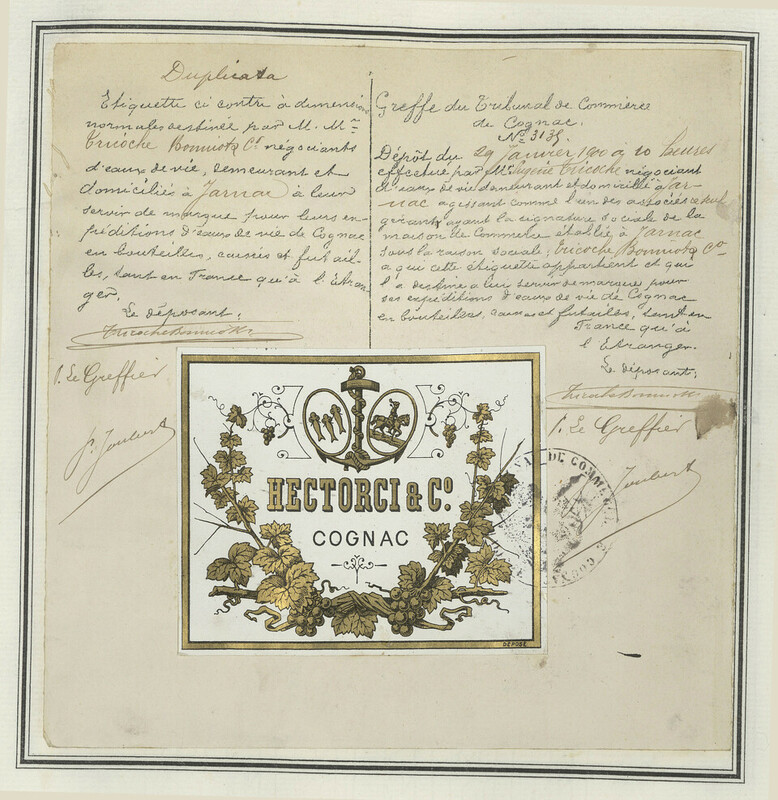 Duplicata
Etiquette ci contre à dimensions
normales destinée par M. Mrs
Tricoche Bonniot & Co négociants
d'eaux de vie, demeurant et
domiciliés à Jarnac à leur
servir de marque pour leurs ex-
péditions d'eaux de vie de Cognac
en bouteilles, caisses et futail-
les, tant en France qu'à l'Etran-
ger.
Le déposant:
Tricoche Bonniot & Co
p. Le Greffier
p. Joubert
Greffe du Tribunal de Commerce
de Cognac.
No 3135.
Dépôt du 29 Janvier 1900 à 10 heures
effectué par Mr Eugène Tricoche négociant
d'eaux de vie demeurant et domicilié à Jar-
nac agissant comme l'un des associés
gérants ayant la signature sociale de la
maison de Commerce établie à Jarnac
sous la raison sociale: Tricoche Bonniot & Co
a qui cette étiquette appartient et qui
l'a destine a lui servir de marque pour
ses expéditions d'eaux de vie de Cognac
en bouteilles, caisses et futailles, tant en
France qu'à
l'Etranger.
Le déposant:
Tricoche Bonniot & Co
p. Le Greffier
Joubert
HECTORCI & Co.
COGNAC
DÉPOSÉ
TRIBUNAL DE COMMERCE
COGNAC